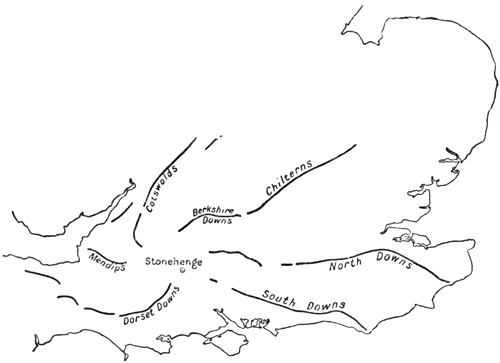 Cotswolds
Chilterns
Berkshire
Downs
Mendips
Stonehenge
North Downs
Dorset Downs
South Downs